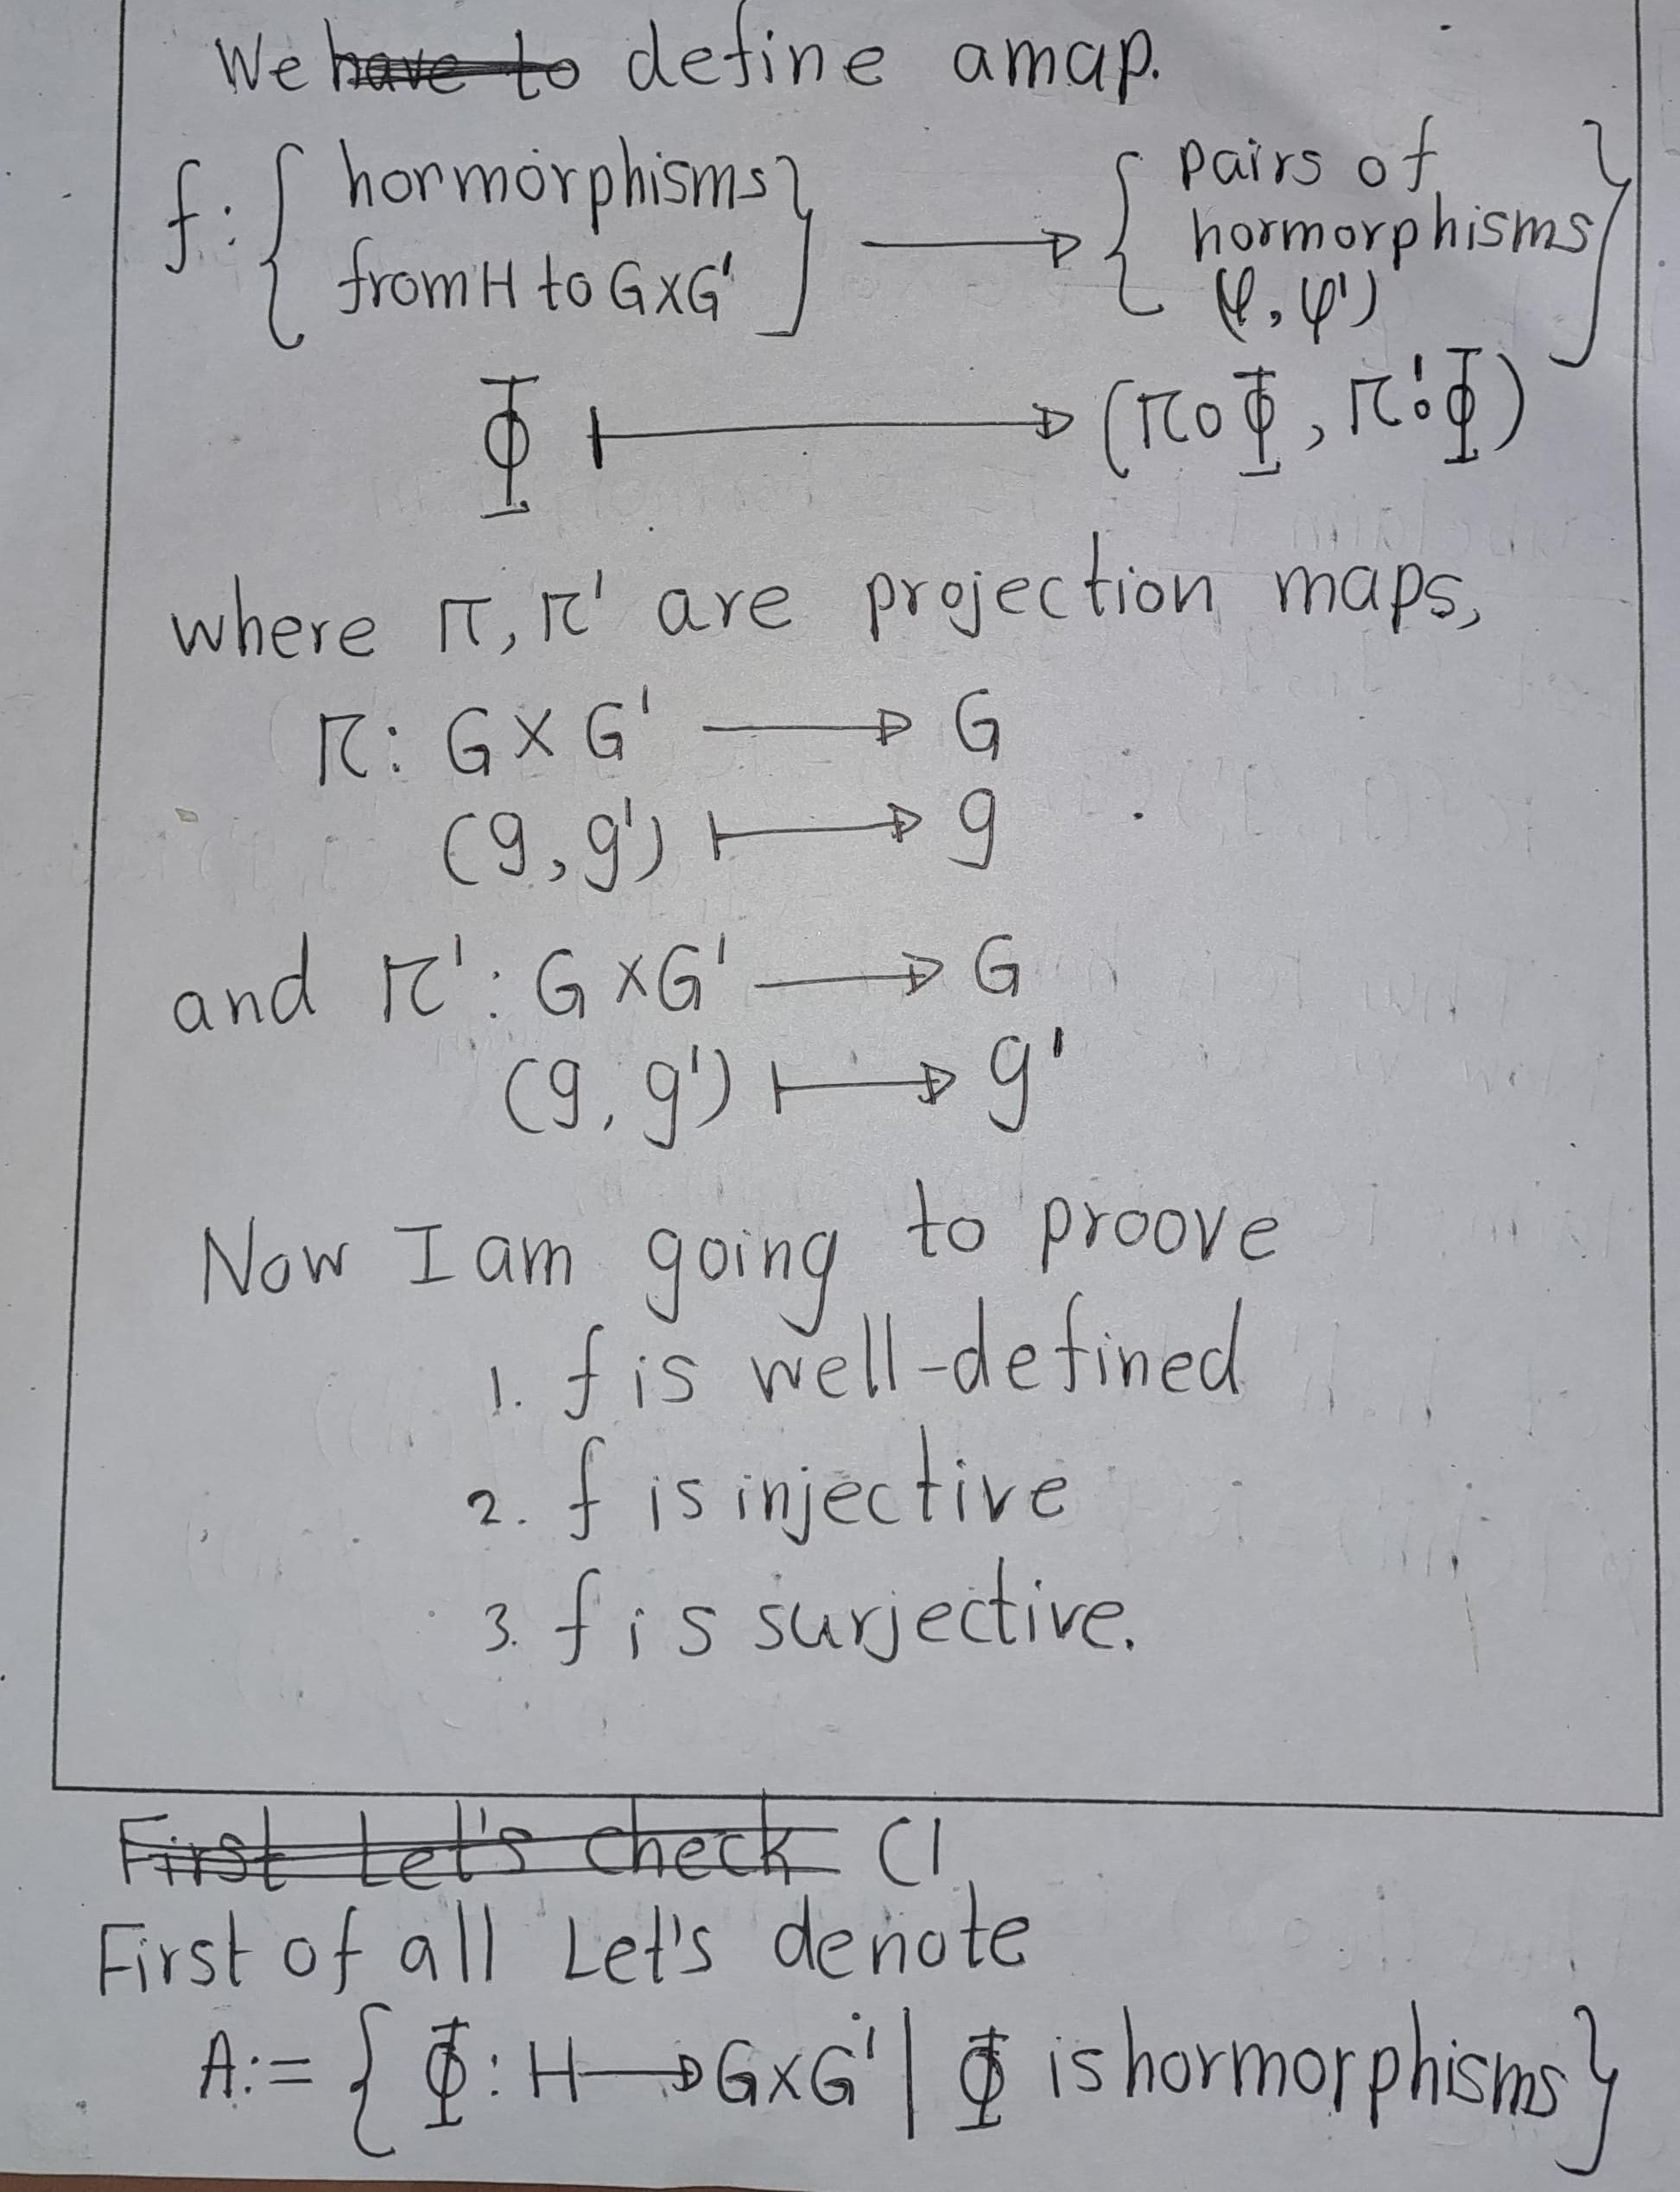 We have to define amap.
f: { hormorphisms from H to G×G' } ⟶ { pairs of hormorphisms (φ, φ') }
Φ ⟼ (π∘Φ, π'∘Φ)
where π, π' are projection maps,
π: G × G' ⟶ G
(g, g') ⟼ g
and π': G × G' ⟶ G
(g, g') ⟼ g'
Now I am going to proove
1. f is well-defined
2. f is injective
3. f is surjective.
First Let's check Cl
First of all Let's denote
A:= { Φ: H ⟶ G×G' | Φ is hormorphisms }